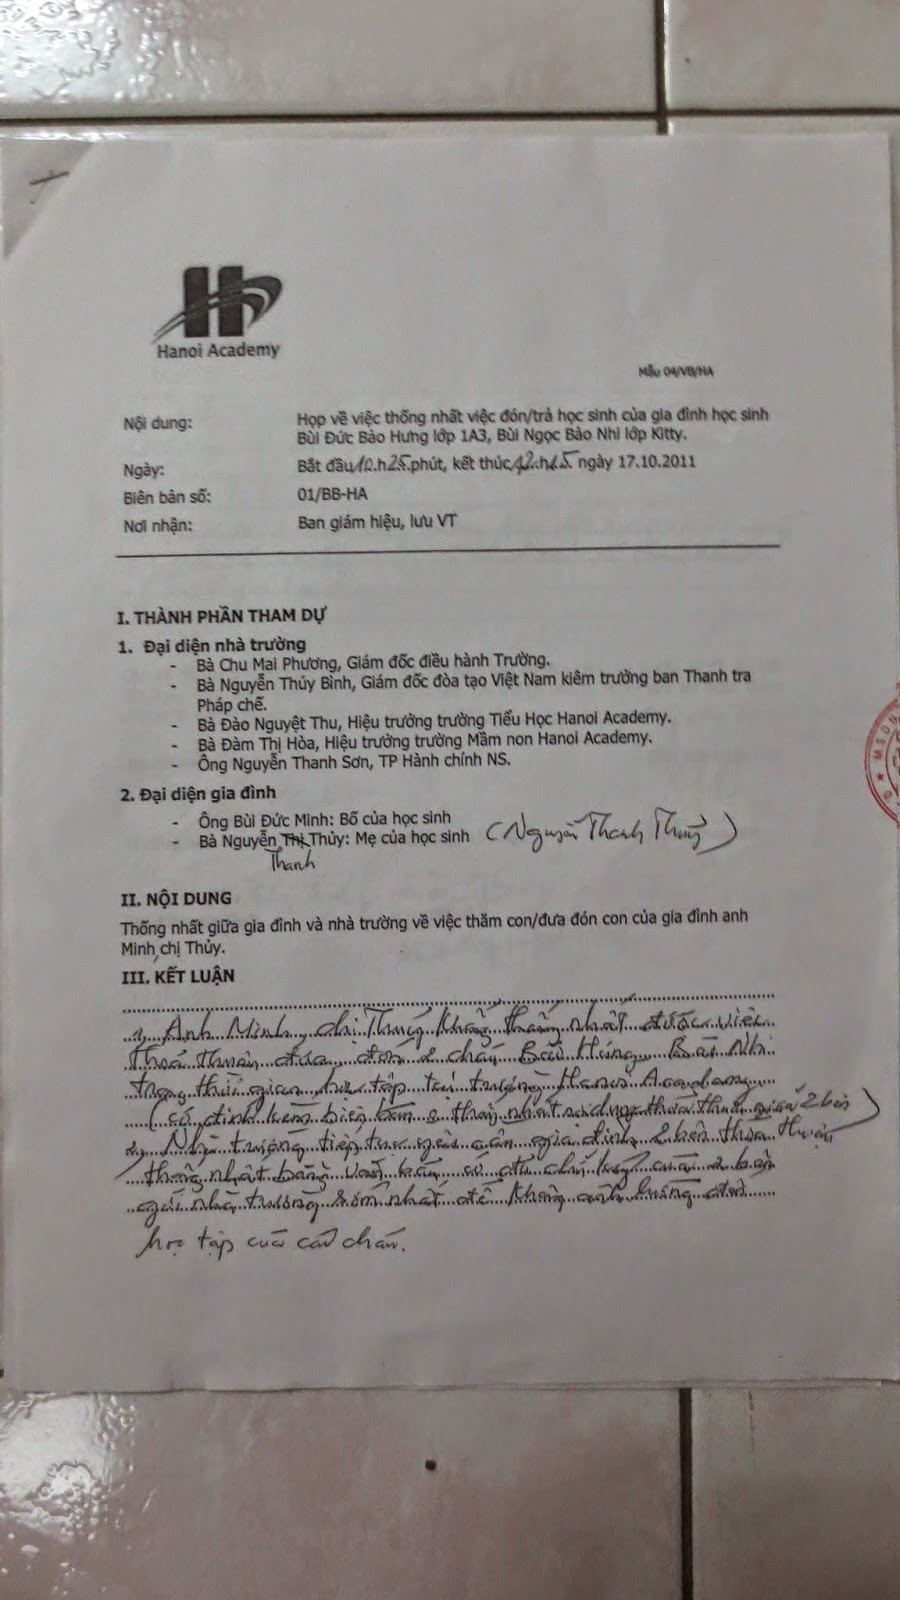 Hanoi Academy
Mẫu 04/VB/HA
Nội dung: Họp về việc thống nhất việc đón/trả học sinh của gia đình học sinh
Bùi Đức Bảo Hưng lớp 1A3, Bùi Ngọc Bảo Nhi lớp Kitty.
Ngày: Bắt đầu 10.h25.phút, kết thúc 12.h15. ngày 17.10.2011
Biên bản số: 01/BB-HA
Nơi nhận: Ban giám hiệu, lưu VT
I. THÀNH PHẦN THAM DỰ
1. Đại diện nhà trường
- Bà Chu Mai Phương, Giám đốc điều hành Trường.
- Bà Nguyễn Thúy Bình, Giám đốc đòa tạo Việt Nam kiêm trưởng ban Thanh tra
Pháp chế.
- Bà Đào Nguyệt Thu, Hiệu trưởng trường Tiểu Học Hanoi Academy.
- Bà Đàm Thị Hòa, Hiệu trưởng trường Mầm non Hanoi Academy.
- Ông Nguyễn Thanh Sơn, TP Hành chính NS.
2. Đại diện gia đình
- Ông Bùi Đức Minh: Bố của học sinh
- Bà Nguyễn Thị Thủy: Mẹ của học sinh (Nguyễn Thanh Thủy)
Thanh
II. NỘI DUNG
Thống nhất giữa gia đình và nhà trường về việc thăm con/đưa đón con của gia đình anh
Minh, chị Thủy.
III. KẾT LUẬN
1, Anh Minh, chị Thủy không thống nhất được việc
thoả thuận đưa đón 2 cháu Bảo Hưng, Bảo Nhi
trong thời gian học tập tại trường Hanoi Academy
(có đính kèm biên bản thống nhất nội dung thoả thuận giữa 2 bên)
2, Nhà trường tiếp tục yêu cầu gia đình 2 bên thỏa thuận
thống nhất bằng văn bản có đủ chữ ký của 2 bên
gửi nhà trường sớm nhất để không ảnh hưởng đến
học tập của các cháu.